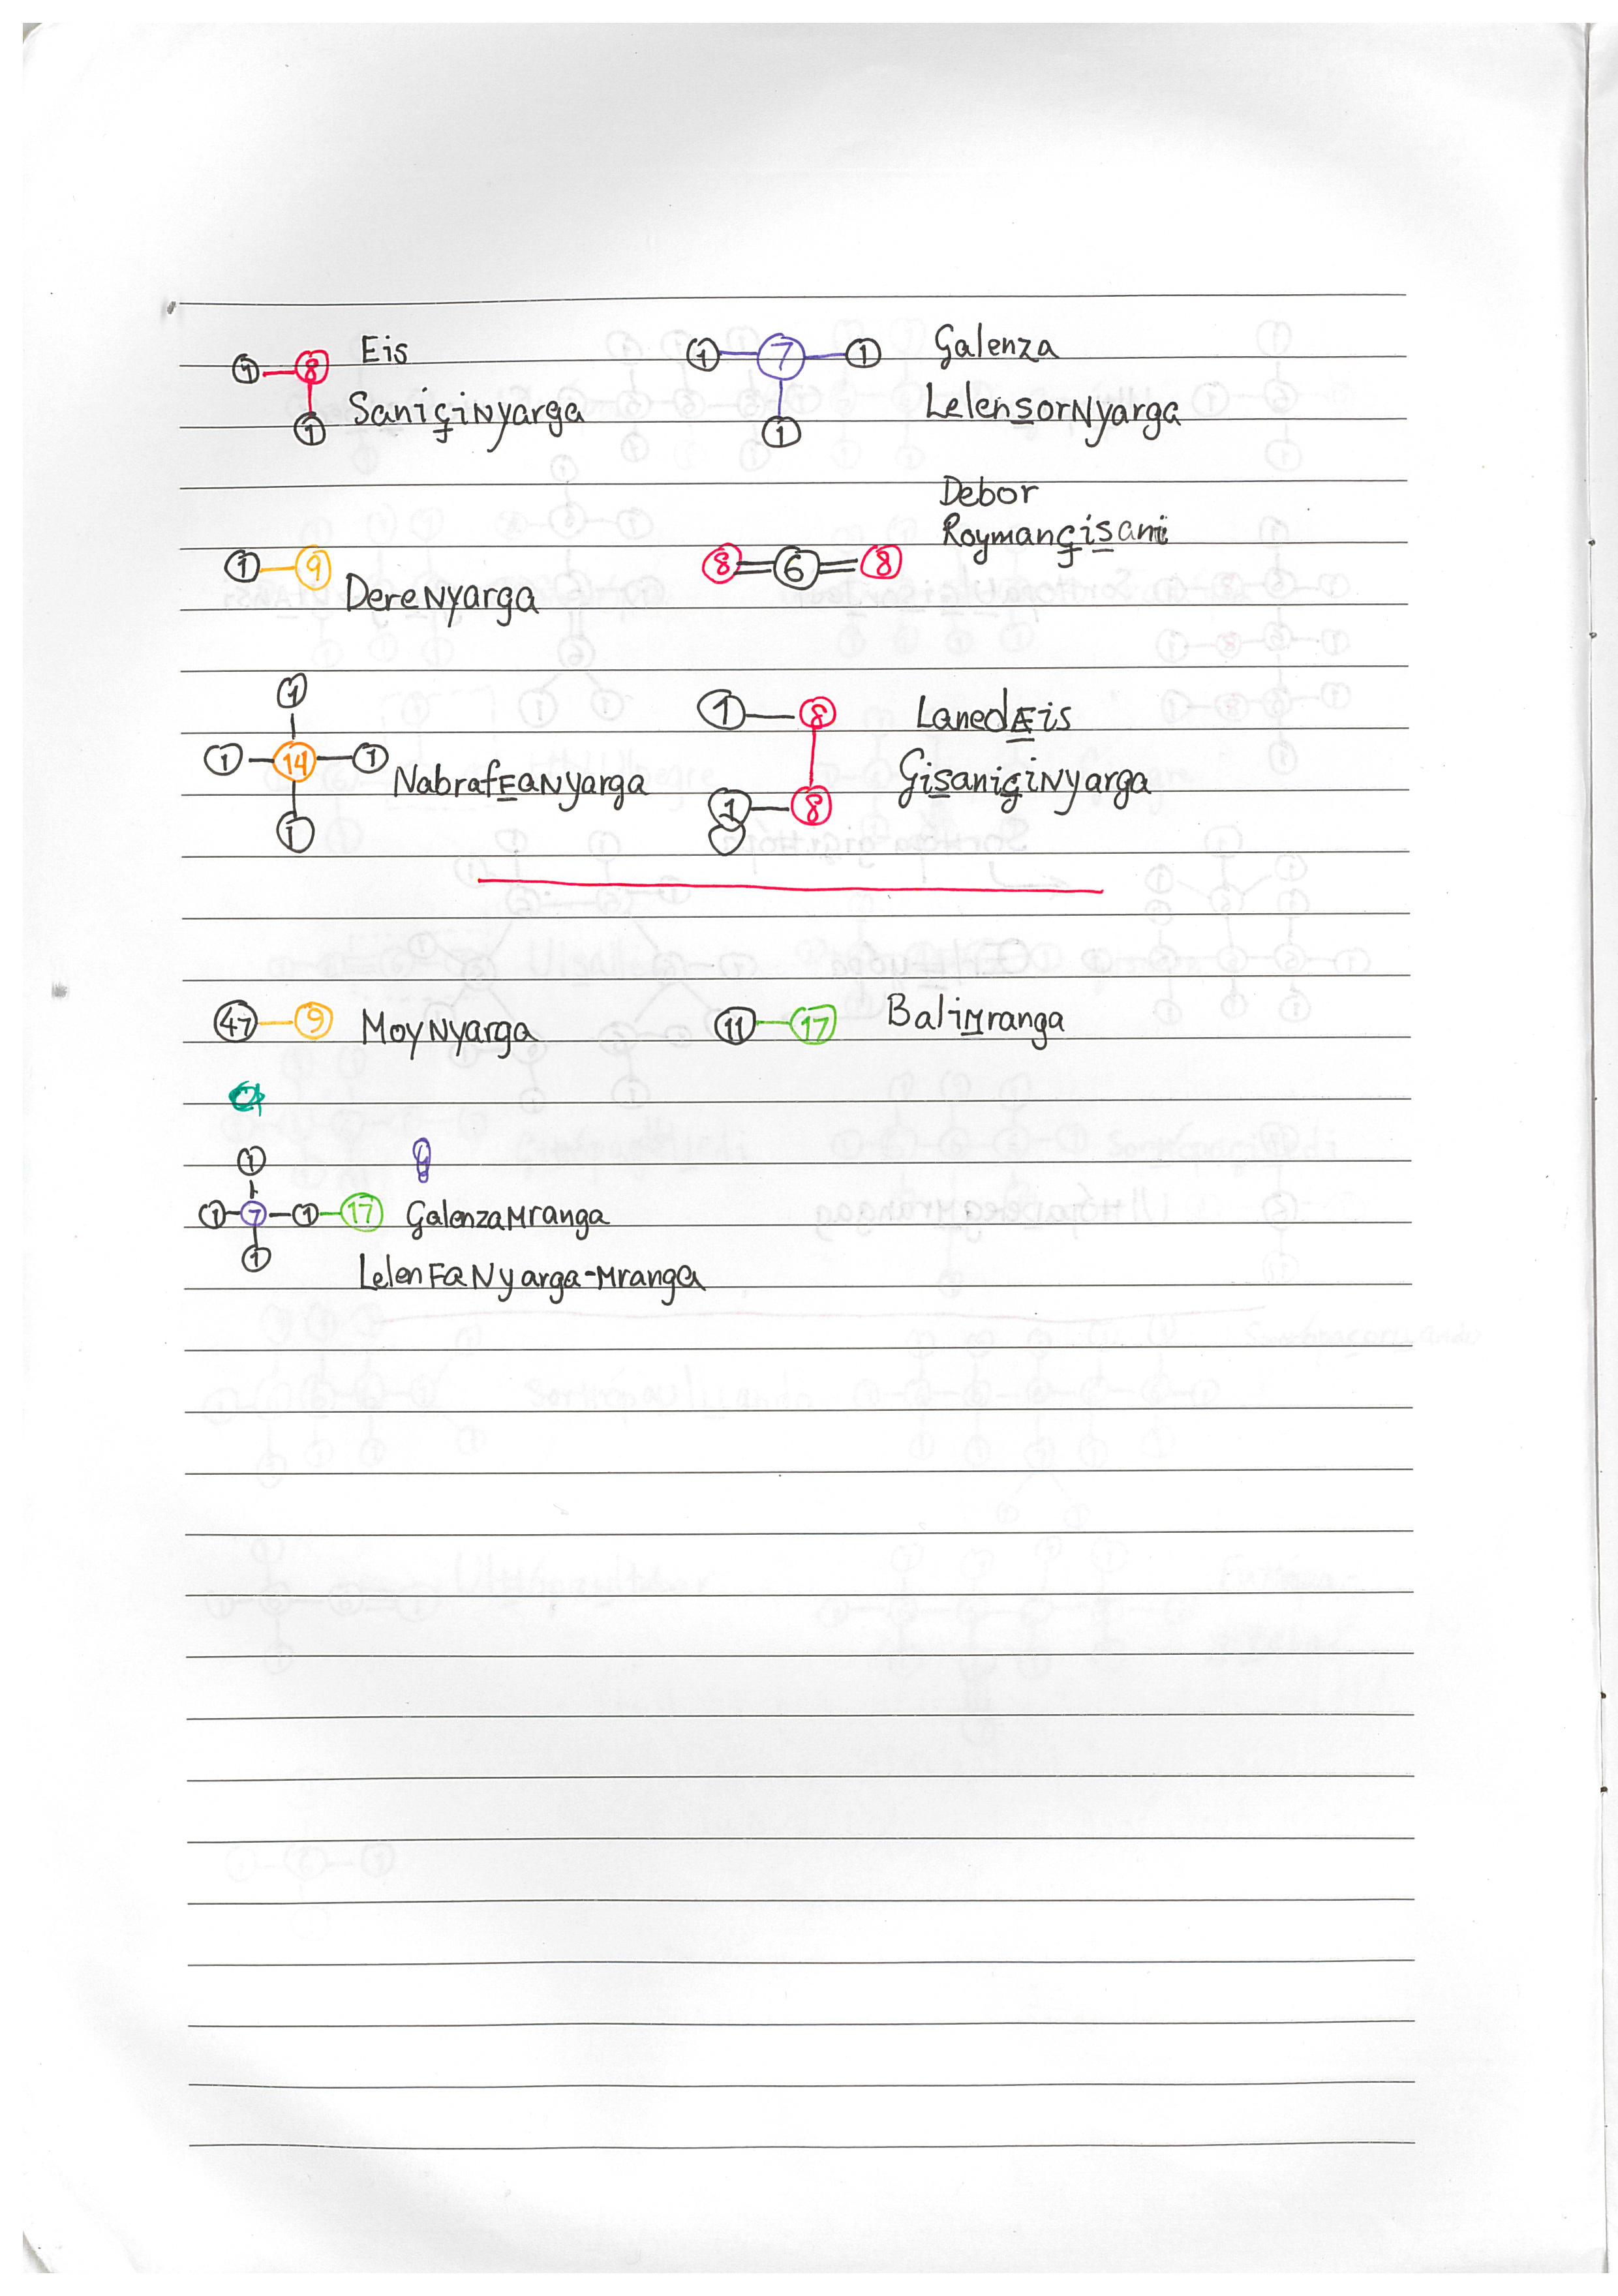 1 8 1 Eis
Saniçinyarga
1 7 1 1 Galenza
LelensorNyarga
1 9 DereNyarga
8 6 8 Debor
Roymançisani
1 1 14 1 1 NabrafEaNyarga
1 8 1 8 LanedAEis
GisaniçiNyarga
47 9 MoyNyarga
11 17 BaliMranga
1
1 7 1 17 GalenzaMranga
1
LelenFaNyarga-Mranga